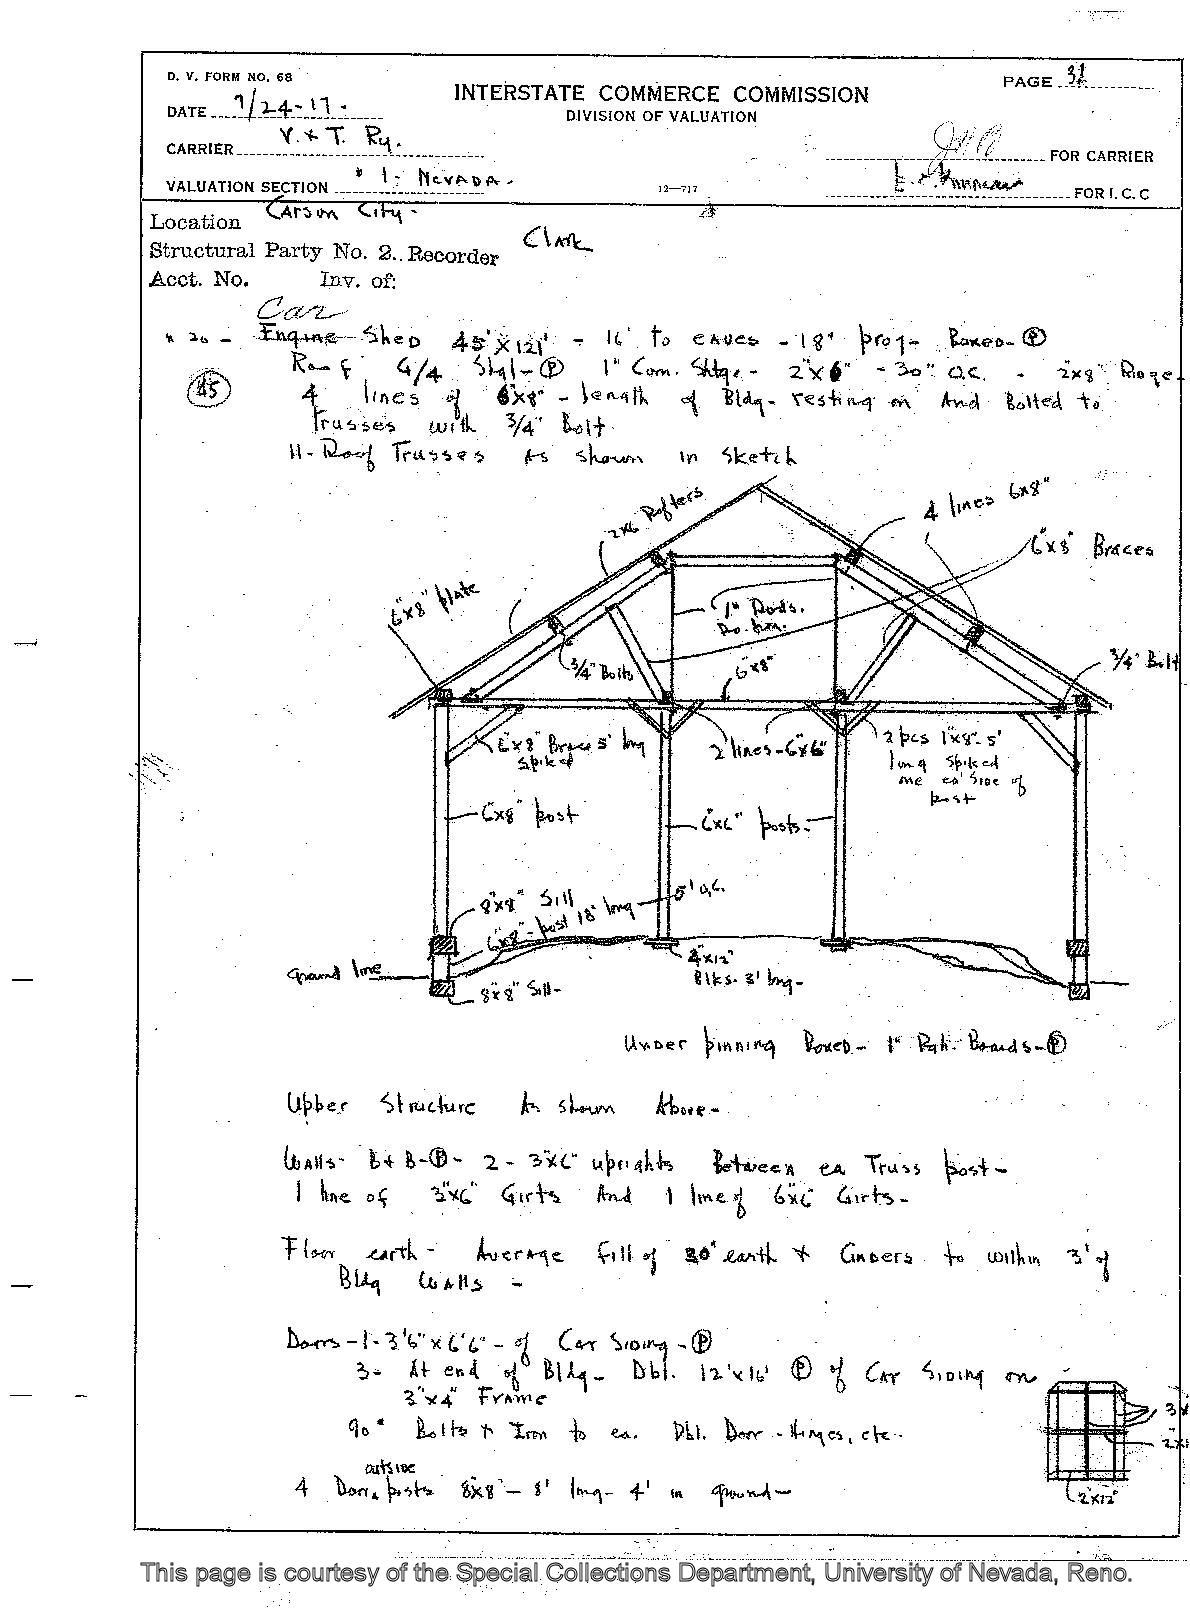 D. V. FORM NO. 68
INTERSTATE COMMERCE COMMISSION
DIVISION OF VALUATION
PAGE 31
DATE 7/24-17-
CARRIER V. & T. Ry.
FOR CARRIER
VALUATION SECTION #1- NEVADA-
12-717
FOR I. C. C
Location Carson City-
Structural Party No. 2.. Recorder Clark
Acct. No. Inv. of:
Car
# 20 - Engine Shed 45'X121' - 16' to eaves - 18" proj- Boxed- Ⓟ
Roof G/4 Shgl- Ⓟ 1" Com. Shtg. - 2"X6" - 30" O.C. - 2"x8" Ridge-
45
4 lines of 6"X8" - length of Bldg- resting on And Bolted to
Trusses with 3/4" Bolt
11- Roof Trusses As shown in Sketch
2x6 Rafters
4 lines 6x8"
6"x8" Braces
6"x8" plate
1" Rods.
3/4" Bolts
6"x8"
3/4" Bolt
6"x8" Brace 5' long
Spiked
2 lines-6"x6"
2 pcs 1"x8"-5'
long Spiked
one ea Side of
post
6"x8" post
6"x6" posts-
8"x8" Sill
6"x8"-post 18" long
5' o.c.
ground line
8"x8" Sill-
4"x12"
Blks- 3' long-
Under pinning Boxed- 1" Rgh. Boards- Ⓟ
Upper Structure As shown Above-
Walls- B+B- Ⓟ - 2 - 3"X6" uprights Between ea Truss post-
1 line of 3"x6" Girts And 1 line of 6"x6" Girts-
Floor earth - Average fill of 30" earth & Cinders to within 3' of
Bldg Walls -
Doors-1-3'6"x6'6"- of Car Siding- Ⓟ
3- At end of Bldg- Dbl. 12'x16' Ⓟ of Car Siding on
3"x4" Frame
90# Bolts & Iron to ea. Dbl. Door - Hinges, etc.
outside
4 Door posts 8"x8" - 8' long- 4' in ground-
2"x12"
This page is courtesy of the Special Collections Department, University of Nevada, Reno.